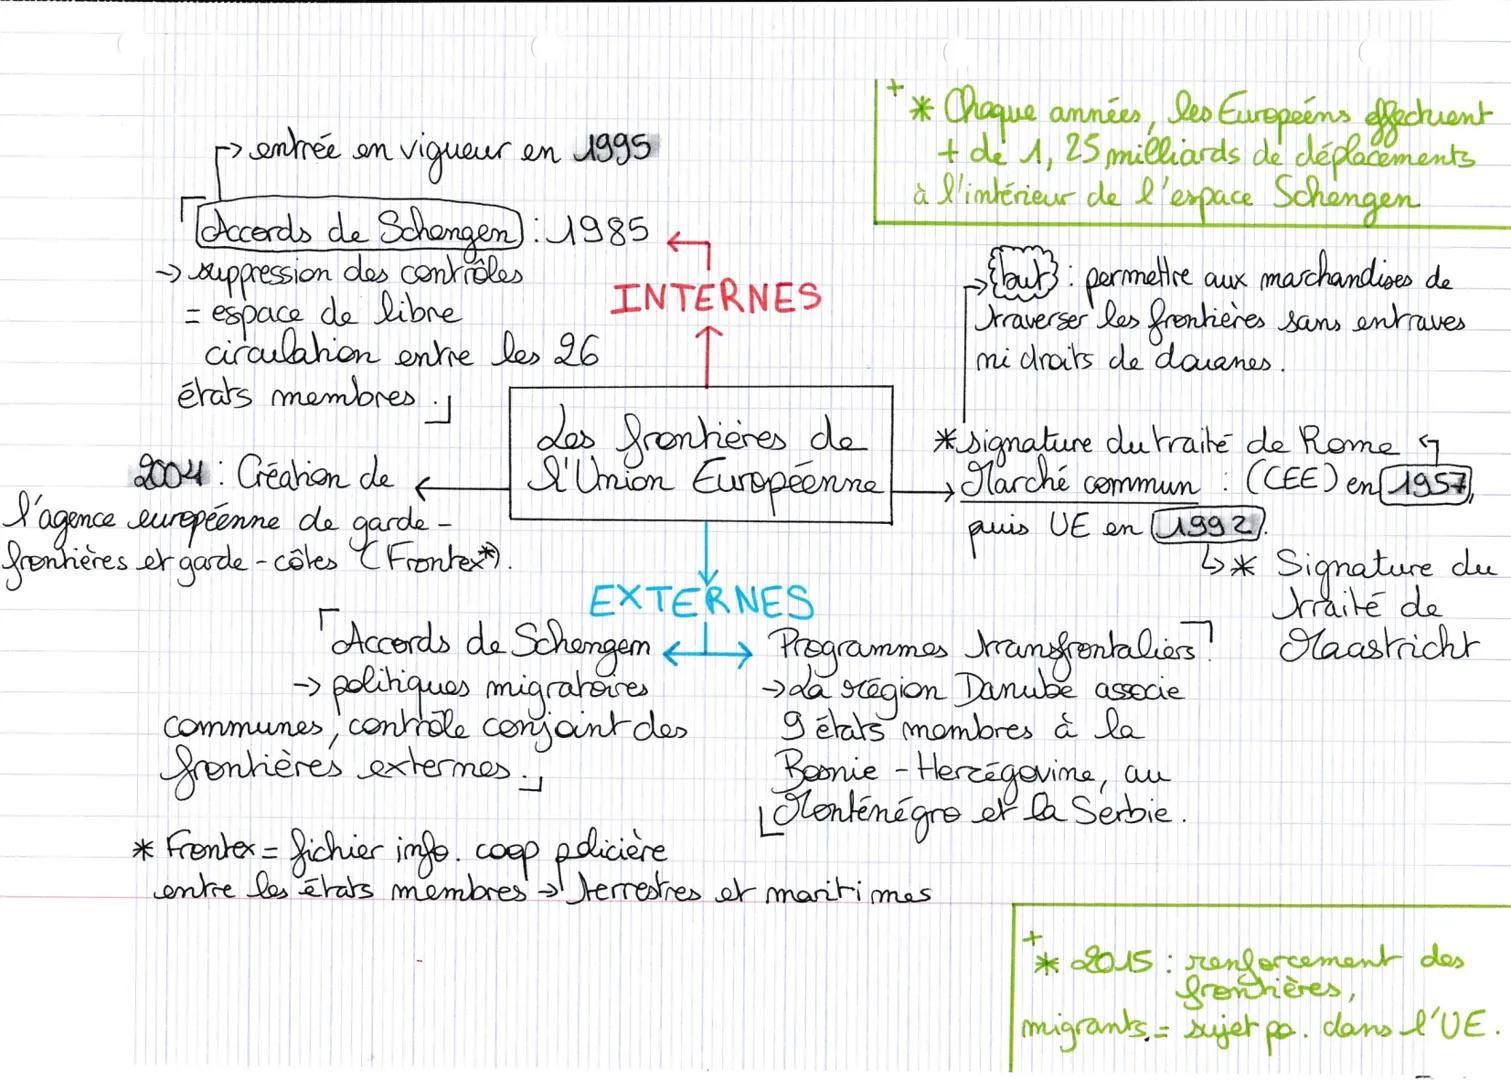 +
* Chaque années, les Européens effectuent
+ de 1, 25 milliards de déplacements
à l'intérieur de l'espace Schengen
entrée en vigueur en 1995
Accords de Schengen : 1985
→ suppression des contrôles
= espace de libre
circulation entre les 26
états membres.
INTERNES
but : permettre aux marchandises de
traverser les frontières sans entraves
ni droits de douanes.
Les frontières de
l'Union Européenne
* signature du traité de Rome
Marché commun : (CEE) en 1957,
puis UE en 1992.
↳* Signature du
traité de
Maastricht
2004 : Création de
l'agence européenne de garde-
frontières et garde-côtes (Frontex*).
EXTERNES
Accords de Schengen
→ politiques migratoires
communes, contrôle conjoint des
frontières externes.
Programmes transfrontaliers :
→ La région Danube associe
9 états membres à la
Bosnie-Herzégovine, au
Monténégro et la Serbie.
* Frontex = fichier info. coop policière
entre les états membres → terrestres et maritimes
+
* 2015 : renforcement des
frontières,
migrants = sujet po. dans l'UE.